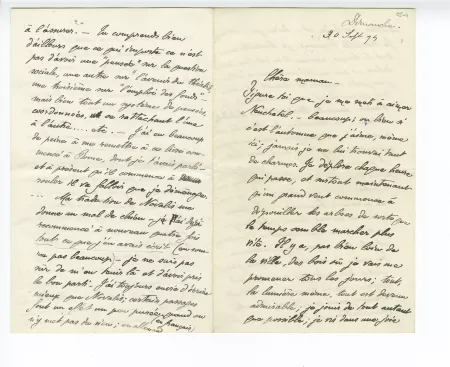 à l'assurer. — Tu comprends bien
d'ailleurs que ce qui importe ce n'est
pas d'avoir une "pensée" sur la question
sociale, une autre sur "l'avenir du théâtre"
une troisième sur "l'emploi des fonds" —
mais bien tout un système de pensées
coordonnées, et se rattachant l'une
à l'autre.... etc. — J'ai eu beaucoup
de peine à me remettre à ce livre com-
mencé à
et à présent qu'il commence à
rouler il va falloir que je déménage.
... Ma traduction de Novalis me
donne un mal de chien — je l'ai déjà
recommencé à nouveau quatre fois
tout ce que j'en avais écrit (en somme
pas beaucoup) — je ne suis pas
sûr de m'en tenir là et d'avoir pris
le bon parti. J'ai toujours envie d'écrire
mieux que Novalis; certains passages
sont un peu quand on
n'y met pas du sien; en allemand
en français
Dimanche.
30 Sept 94
Chère maman.
Figure toi que je me mets à aimer
Neuchatel — beaucoup; ou bien si
c'est l'automne que j'aime, même
ici; jamais je ne lui trouvai tant
de charmes. Je déplore chaque heure
qui passe, et surtout maintenant
qu'un grand vent commence à
dépouiller les arbres de sorte que
le temps semble marcher plus
vite. Il y a, pas bien loin de
la ville, des bois où je vais me
promener tous les jours; tout,
la lumière même, tout est devenu
admirable; je jouis de tout autant
que possible; je vis dans une joie